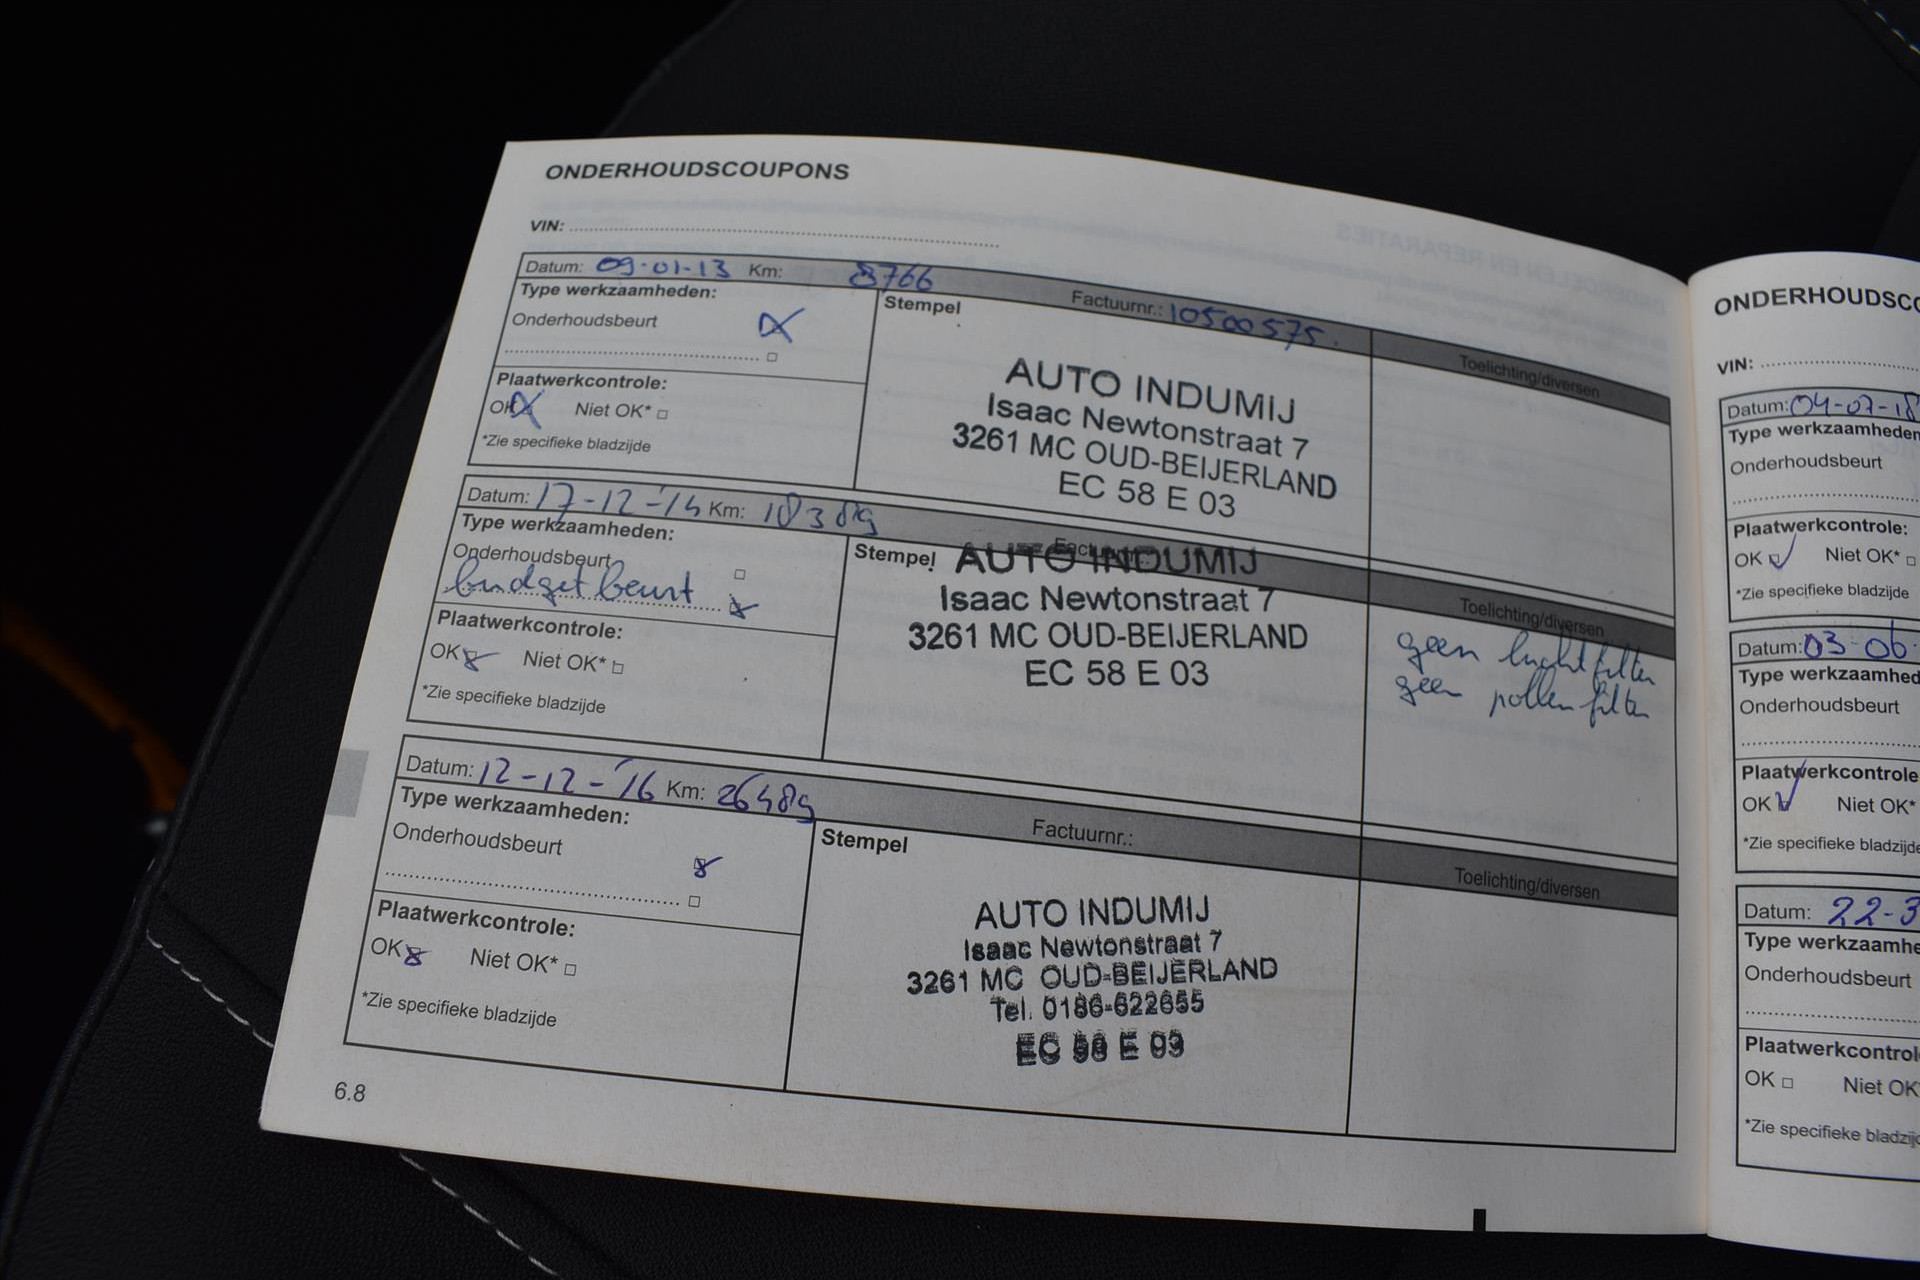 ONDERHOUDSCOUPONS
VIN:
Datum: 09-01-13 Km: 8766 Factuurnr.: 10500575.
Type werkzaamheden:
Onderhoudsbeurt
Plaatwerkcontrole:
OK Niet OK*
*Zie specifieke bladzijde
Stempel
AUTO INDUMIJ
Isaac Newtonstraat 7
3261 MC OUD-BEIJERLAND
EC 58 E 03
Toelichting/diversen
Datum: 17-12-'14 Km: 18389
Type werkzaamheden:
Onderhoudsbeurt
budget beurt
Plaatwerkcontrole:
OK Niet OK*
*Zie specifieke bladzijde
Stempel
AUTO INDUMIJ
Isaac Newtonstraat 7
3261 MC OUD-BEIJERLAND
EC 58 E 03
Toelichting/diversen
geen luchtfilter
geen pollenfilter
Datum: 12-12-'16 Km: 26489 Factuurnr.:
Type werkzaamheden:
Onderhoudsbeurt
Plaatwerkcontrole:
OK Niet OK*
*Zie specifieke bladzijde
Stempel
AUTO INDUMIJ
Isaac Newtonstraat 7
3261 MC OUD-BEIJERLAND
Tel. 0186-622655
EC 58 E 03
Toelichting/diversen
6.8
ONDERHOUDSCO
VIN:
Datum: 04-07-18
Type werkzaamheden
Onderhoudsbeurt
Plaatwerkcontrole:
OK Niet OK*
*Zie specifieke bladzijde
Datum: 03-06-
Type werkzaamhed
Onderhoudsbeurt
Plaatwerkcontrole
OK Niet OK*
*Zie specifieke bladzijde
Datum: 22-3
Type werkzaamhe
Onderhoudsbeurt
Plaatwerkcontrol
OK Niet OK
*Zie specifieke bladzijd